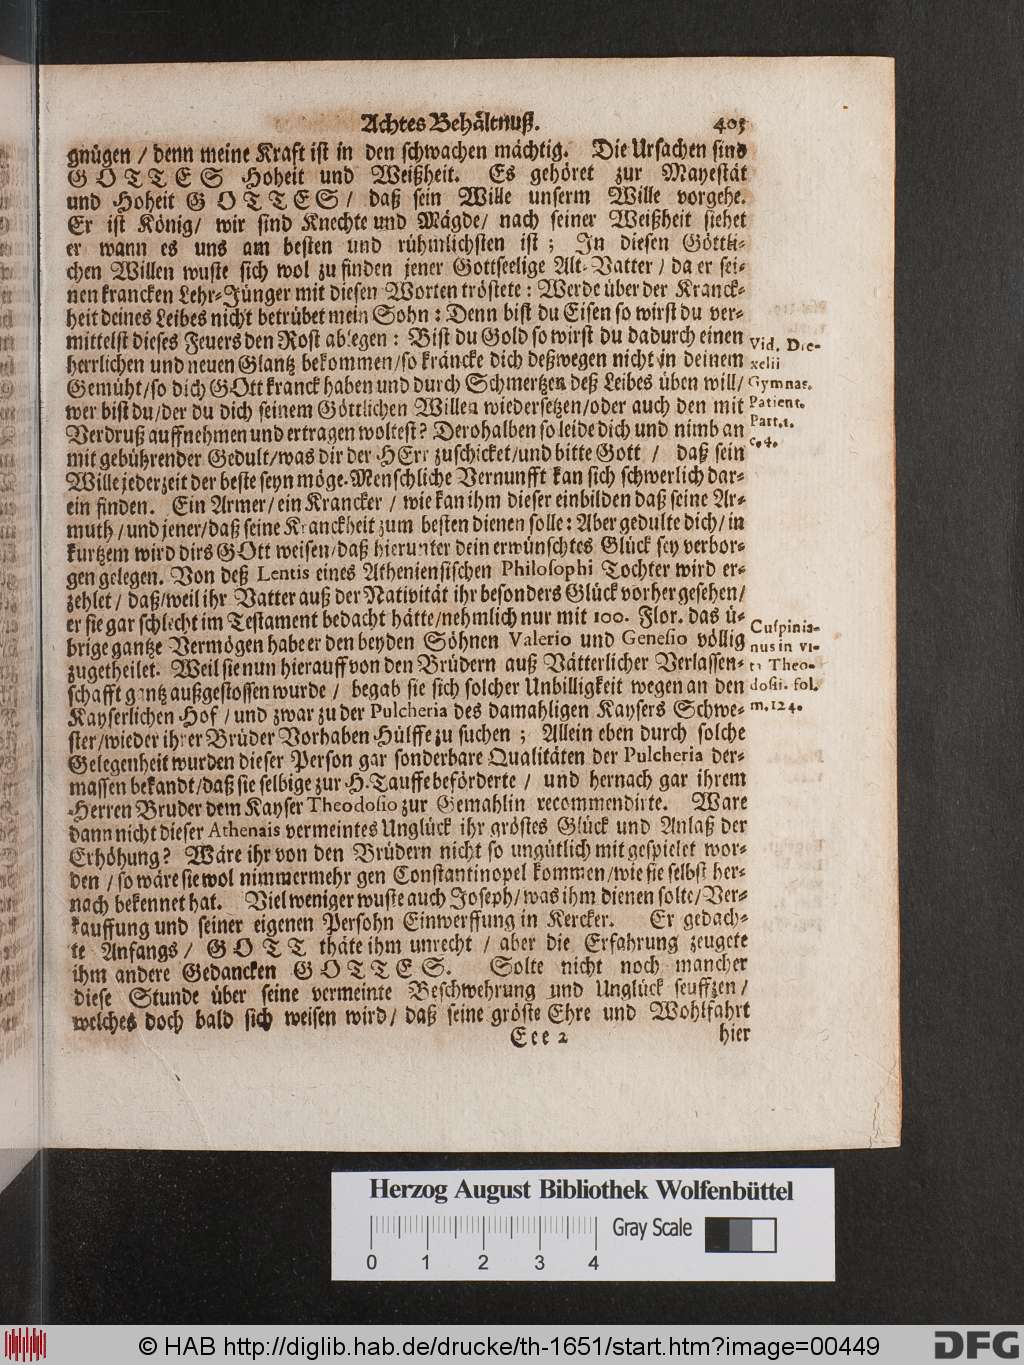 Achtes Behältnuß. 405
gnügen / denn meine Kraft ist in den schwachen mächtig. Die Ursachen sind
GOTTES Hoheit und Weißheit. Es gehöret zur Mayestät
und Hoheit GOTTES / daß sein Wille unserm Wille vorgehe.
Er ist König / wir sind Knechte und Mägde / nach seiner Weißheit siehet
er wann es uns am besten und rühmlichsten ist ; In diesen Göttli-
chen Willen wuste sich wol zu finden jener Gottseelige Alt-Vatter / da er sei-
nen krancken Lehr-Jünger mit diesen Worten tröstete : Werde über der Kranck-
heit deines Leibes nicht betrübet mein Sohn : Denn bist du Eisen so wirst du ver-
mittelst dieses Feuers den Rost ablegen : Bist du Gold so wirst du dadurch einen
herrlichen und neuen Glantz bekommen / so kräncke dich deßwegen nicht in deinem
Gemüht / so dich GOtt kranck haben und durch Schmertzen deß Leibes üben will /
wer bist du / der du dich seinem Göttlichen Willen wiedersetzen / oder auch den mit
Verdruß auffnehmen und ertragen woltest? Derohalben so leide dich und nimb an
mit gebührender Gedult / was dir der HErr zuschicket / und bitte Gott / daß sein
Wille jederzeit der beste seyn möge. Menschliche Vernunfft kan sich schwerlich dar-
ein finden. Ein Armer / ein Krancker / wie kan ihm dieser einbilden daß seine Ar-
muth / und jener / daß seine Kranckheit zum besten dienen solle : Aber gedulte dich / in
kurtzem wird dirs GOtt weisen / daß hierunter dein erwünschtes Glück sey verbor-
gen gelegen. Von deß Lentis eines Atheniensischen Philosophi Tochter wird er-
zehlet / daß / weil ihr Vatter auß der Nativität ihr besonders Glück vorher gesehen /
er sie gar schlecht im Testament bedacht hätte / nehmlich nur mit 100. Flor. das ü-
brige gantze Vermögen habe er den beyden Söhnen Valerio und Genesio völlig
zugetheilet. Weil sie nun hierauff von den Brüdern auß Vätterlicher Verlassen-
schafft gantz außgestossen wurde / begab sie sich solcher Unbilligkeit wegen an den
Kayserlichen Hof / und zwar zu der Pulcheria des damahligen Kaysers Schwe-
ster / wieder ihrer Brüder Vorhaben Hülffe zu suchen ; Allein eben durch solche
Gelegenheit wurden dieser Person gar sonderbare Qualitäten der Pulcheria der-
massen bekandt / daß sie selbige zur H. Tauffe beförderte / und hernach gar ihrem
Herren Bruder dem Kayser Theodosio zur Gemahlin recommendirte. Ware
dann nicht dieser Athenais vermeintes Unglück ihr gröstes Glück und Anlaß der
Erhöhung? Wäre ihr von den Brüdern nicht so ungütlich mitgespielet wor-
den / so wäre sie wol nimmermehr gen Constantinopel kommen / wie sie selbst her-
nach bekennet hat. Viel weniger wuste auch Joseph / was ihm dienen solte / Ver-
kauffung und seiner eigenen Persohn Einwerffung in Kercker. Er gedach-
te Anfangs / GOTT thäte ihm unrecht / aber die Erfahrung zeugete
ihm andere Gedancken GOTTES. Solte nicht noch mancher
diese Stunde über seine vermeinte Beschwehrung und Unglück seuffzen /
welches doch bald sich weisen wird / daß seine gröste Ehre und Wohlfahrt
Eee 2 hier
Vid. Dre-
xelii
Gymnas.
Patient.
Part. 1.
c. 4.
Cuspinia-
nus in vi-
ta Theo-
dosii. fol.
m. 124.
Herzog August Bibliothek Wolfenbüttel
0 1 2 3 4
Gray Scale
© HAB http://diglib.hab.de/drucke/th-1651/start.htm?image=00449
DFG